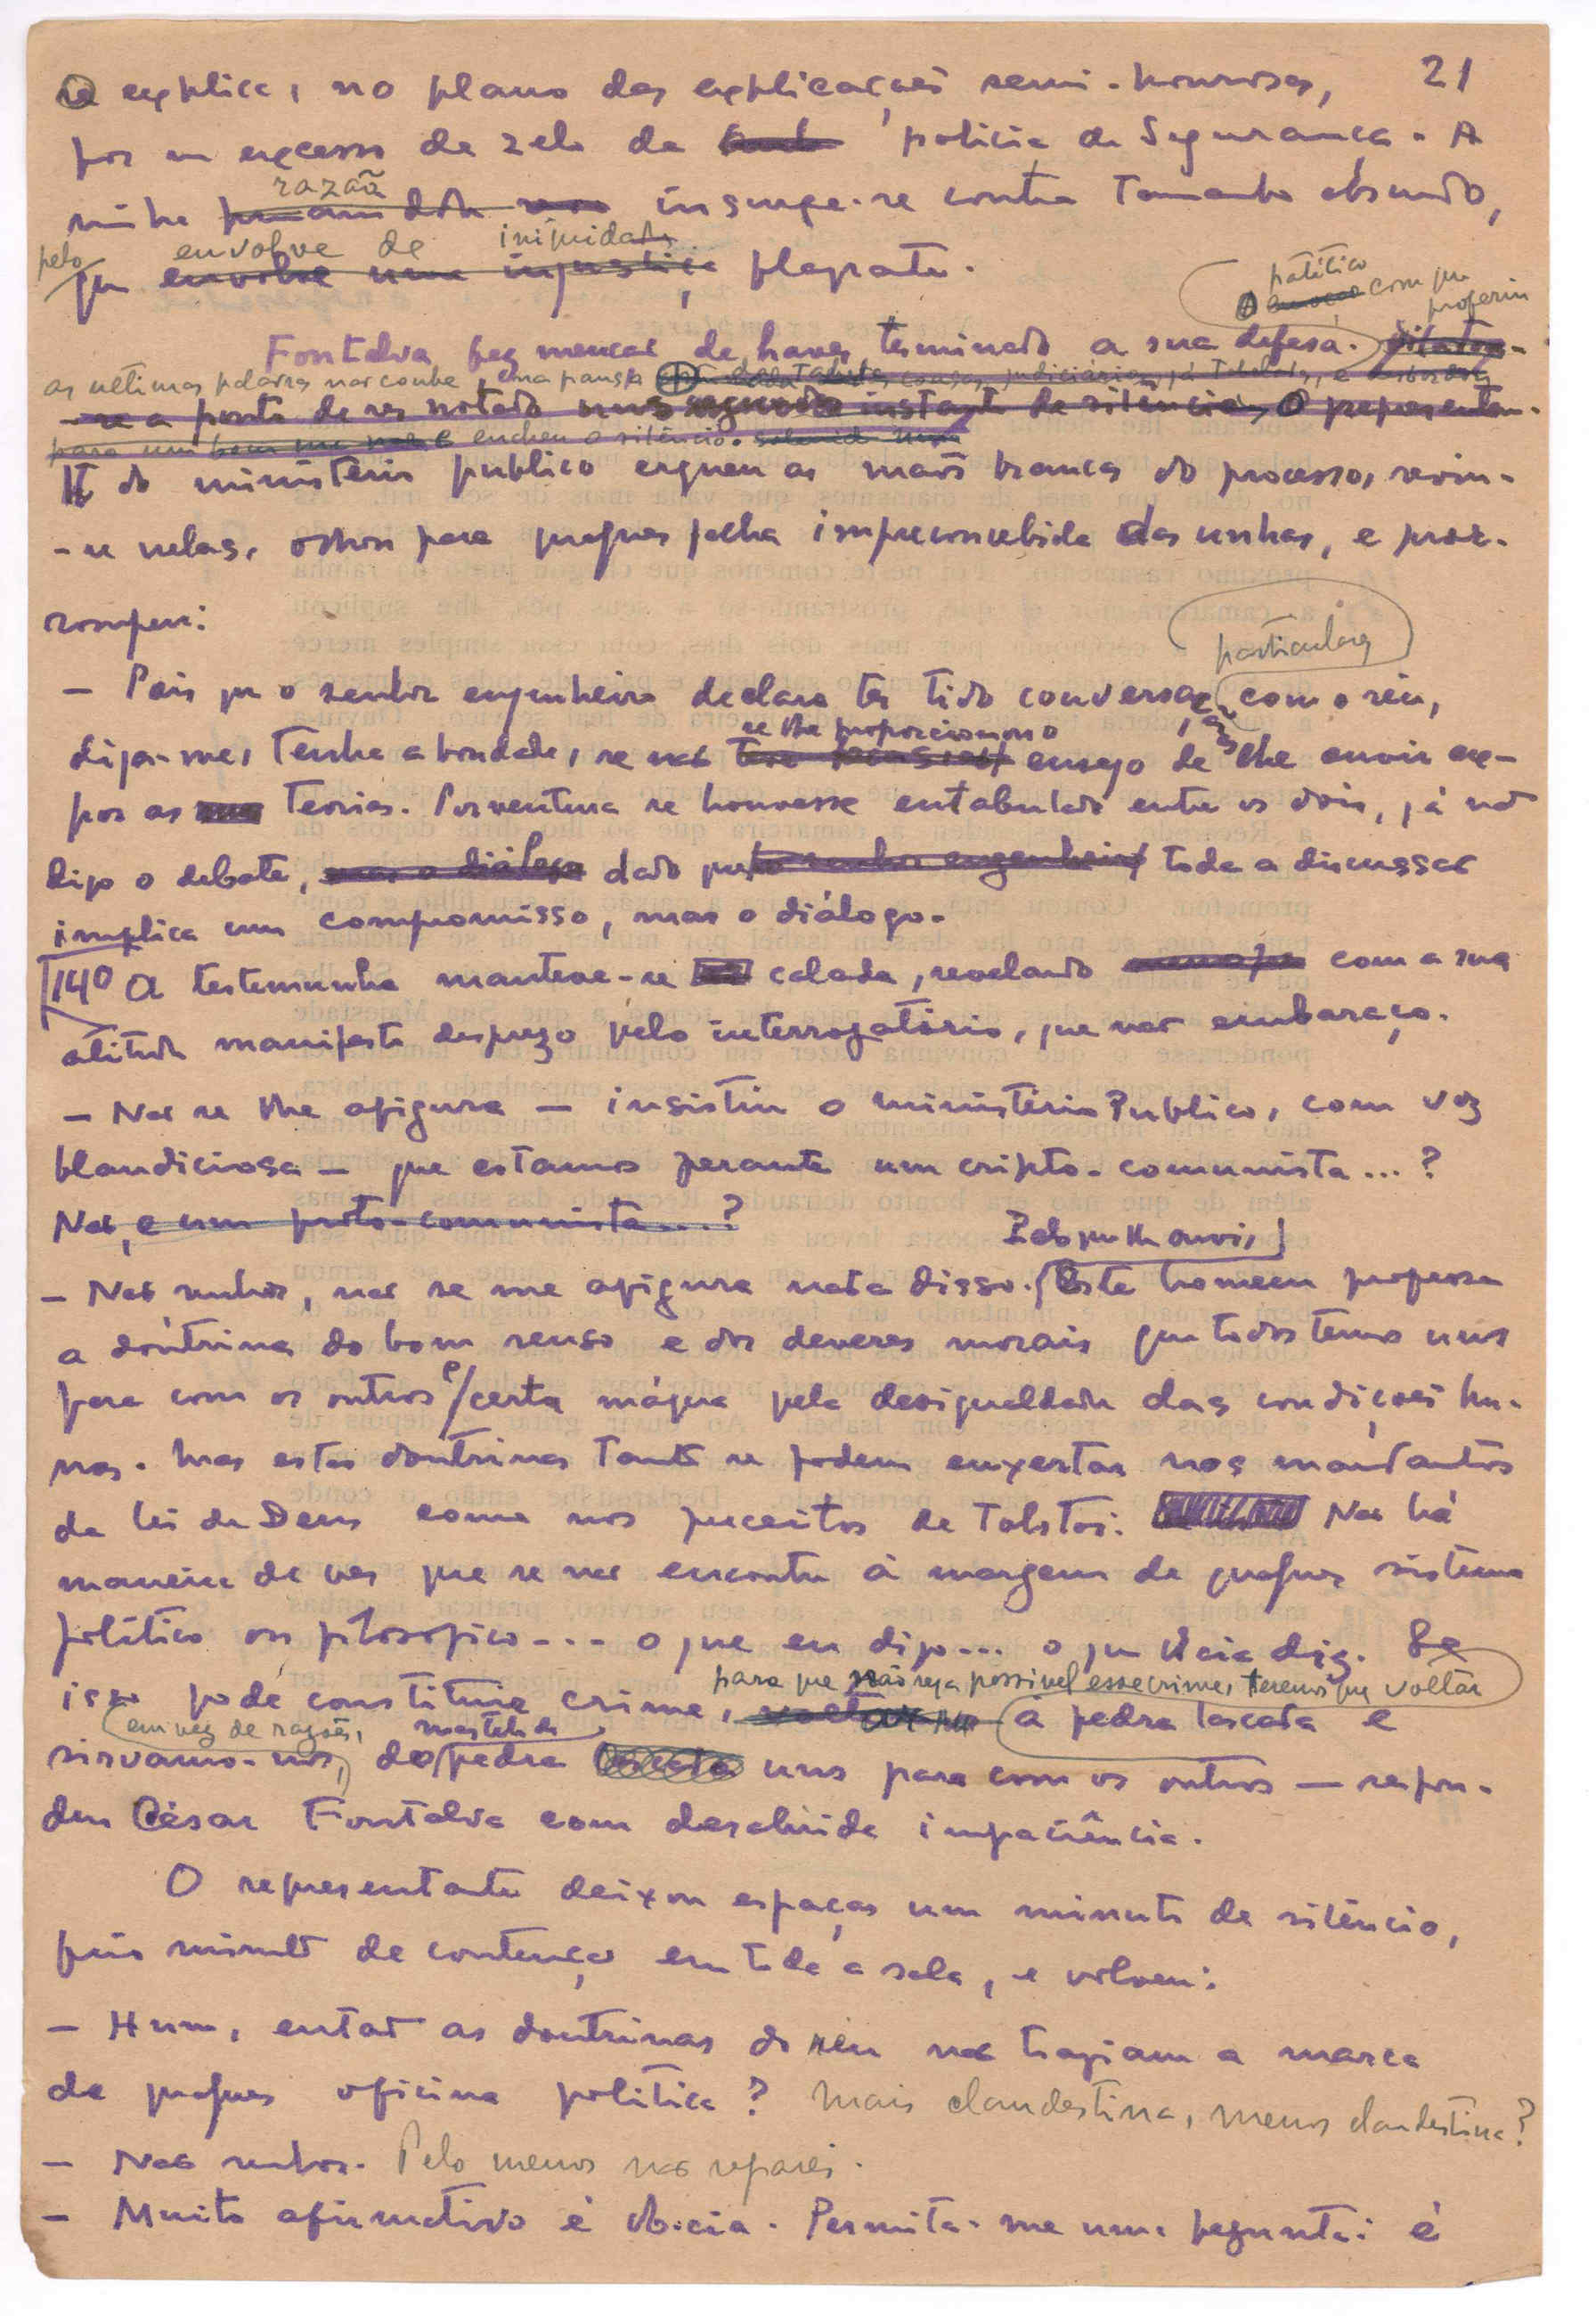 21
se explica, no plano das explicações semi-honrosas,
por um excesso de zelo da polícia de Segurança. A
razão
minha insurge-se contra tamanho absurdo,
pelo envolve de iniquidade
que flagrante.
patético
O com que
proferiu
Fontalva fez menção de haver terminado a sua defesa.
as últimas palavras não coube, uma pausa
encheu o silêncio.
do ministério publico ergueu as mãos brancas do processo, reviu-
-se nelas, olhou para qualquer falha impreconcebida das unhas, e pror-
rompeu:
particulares
— Pois que o senhor engenheiro declara ter tido conversas com o réu,
se lhe proporcionou o
diga-me, tenha a bondade, se não ensejo de lhe ouvir ex-
por as teorias. Porventura se houvesse entabulado entre os dois, já não
digo o debate, dado que toda a discussão
implica um compromisso, mas o diálogo.
140 A testemunha manteve-se calada, revelando com a sua
atitude manifesto desprezo pelo interrogatório, que não embaraço.
— Não se lhe afigura — insistiu o ministério Publico, com voz
blandiciosa — que estamos perante um cripto-comunista...?
Não, é um proto-comunista...?
Pelo que lhe ouvi,
— Não senhor, não se me afigura nada disso. Este homem professa
a doutrina do bom senso e dos deveres morais que todos temos uns
para com os outros e certa mágua pela desigualdade das condições hu-
nas. Mas estas doutrinas tanto se podem enxertar nos mandamentos
da lei de Deus como nos preceitos de Tolstoi. Não há
maneira de ver que se não encontre à margem de qualquer sistema
político ou filosófico... o que eu digo... o que V. Excia diz. Se
para que não seja possível esse crime, teremos que voltar
isso pode constituir crime, à pedra lascada e
em vez de razões,
sirvamo-nos, da pedra uns para com os outros — respon-
deu César Fontalva com desabrida impaciência.
O representante deixou espaçar um minuto de silêncio,
pois minuto de contenção em toda a sala, e volveu:
— Hum, então as doutrinas do réu não traziam a marca
de qualquer oficina política? Mais clandestina, menos clandestina?
— Não senhor. Pelo menos não reparei.
— Muito afirmativo é V. Excia. Permita-me uma pegunta: é